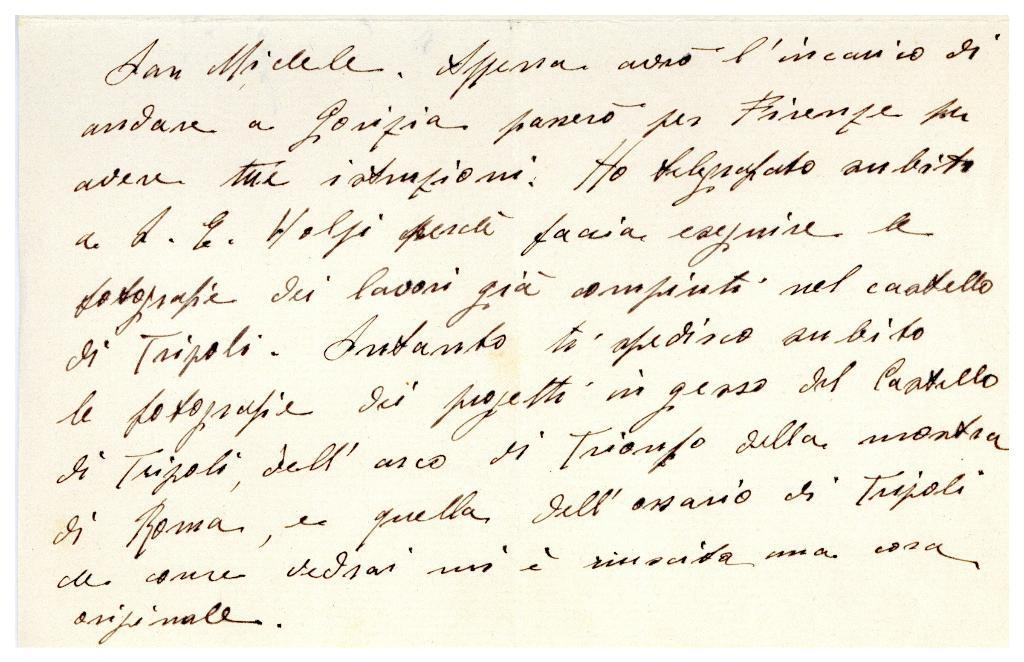 San Michele. Appena avrò l'incarico di
andare a Gorizia passerò per Firenze per
avere tue istruzioni. Ho telegrafato subito
a S. E. Volpi perché faccia eseguire le
fotografie dei lavori già compiuti nel castello
di Tripoli. Intanto ti spedisco subito
le fotografie dei progetti in gesso del Castello
di Tripoli, dell'arco di Trionfo della mostra
di Roma, e quella dell'ossario di Tripoli
che come vedrai mi è riuscita una cosa
originale.